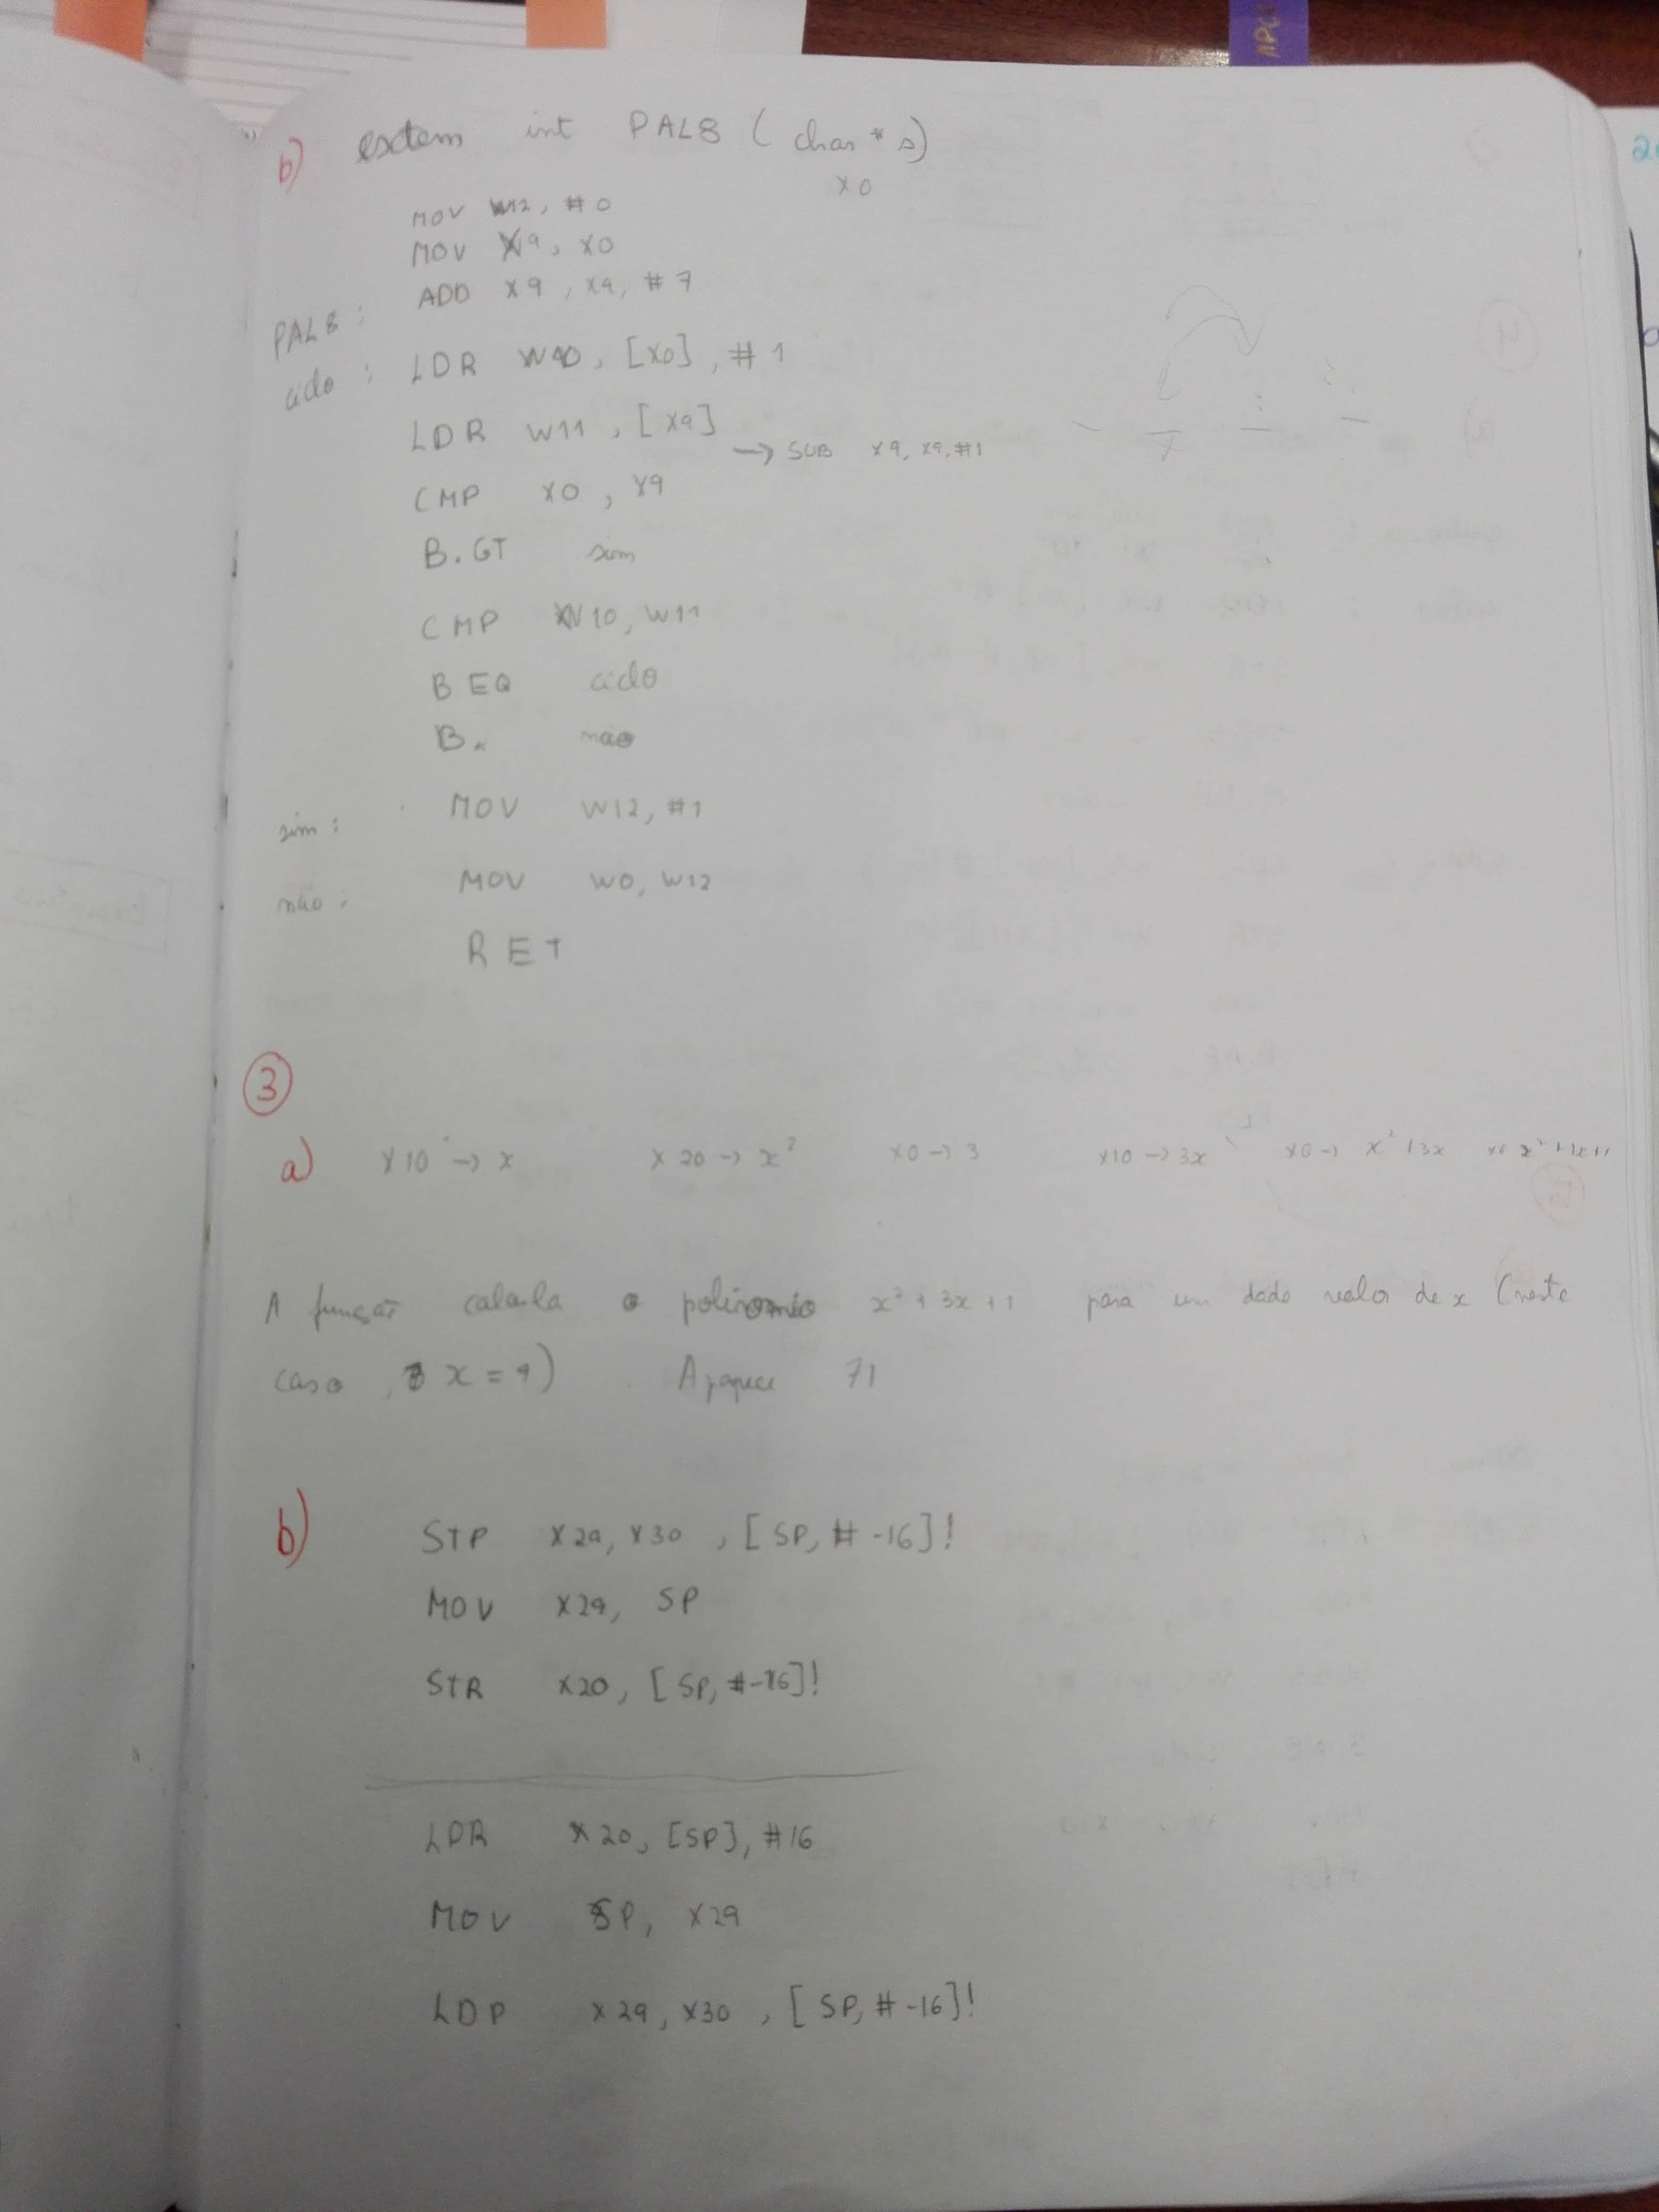 b) extern int PAL8 ( char * s)
x0
MOV W12, #0
MOV X9, X0
PAL8 : ADD X9, X9, #7
ciclo : LDR W10, [X0], #1
LDR W11, [X9]
→ SUB X9, X9, #1
CMP X0, X9
B.GT sim
CMP W10, W11
BEQ ciclo
B. não
sim : MOV W12, #1
não : MOV W0, W12
RET
3
a) X10 → x X20 → x² X0 → 3 X10 → 3x X0 → x² + 3x
A função calcula o polinomio x² + 3x + 1 para um dado valor de x (neste
caso, x = 9) Aparece 71
b) STP X29, X30, [SP, #-16]!
MOV X29, SP
STR X20, [SP, #-16]!
LDR X20, [SP], #16
MOV SP, X29
LDP X29, X30, [SP, #-16]!